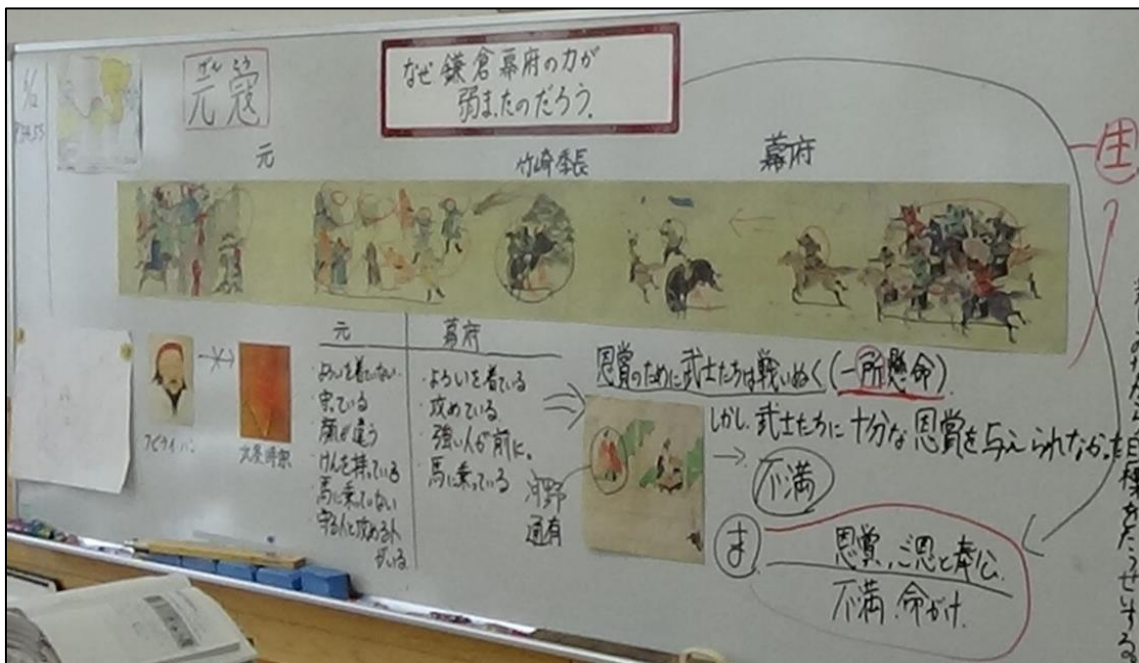 元寇
なぜ鎌倉幕府の力が
弱まったのだろう。
元
竹崎季長
幕府
生
フビライハン
北条時宗
元
・よろいを着ていない
・守っている
・顔が違う
・けんを持っている
・馬に乗っていない
・守る人と攻める人
がいる
幕府
・よろいを着ている
・攻めている
・強い人が前に。
・馬に乗っている
恩賞のために武士たちは戦いぬく(一所懸命)
しかし、武士たちに十分な恩賞を与えられなかった
不満
河野
通有
ま
恩賞、ご恩と奉公
不満、命がけ
目標をたっせいする